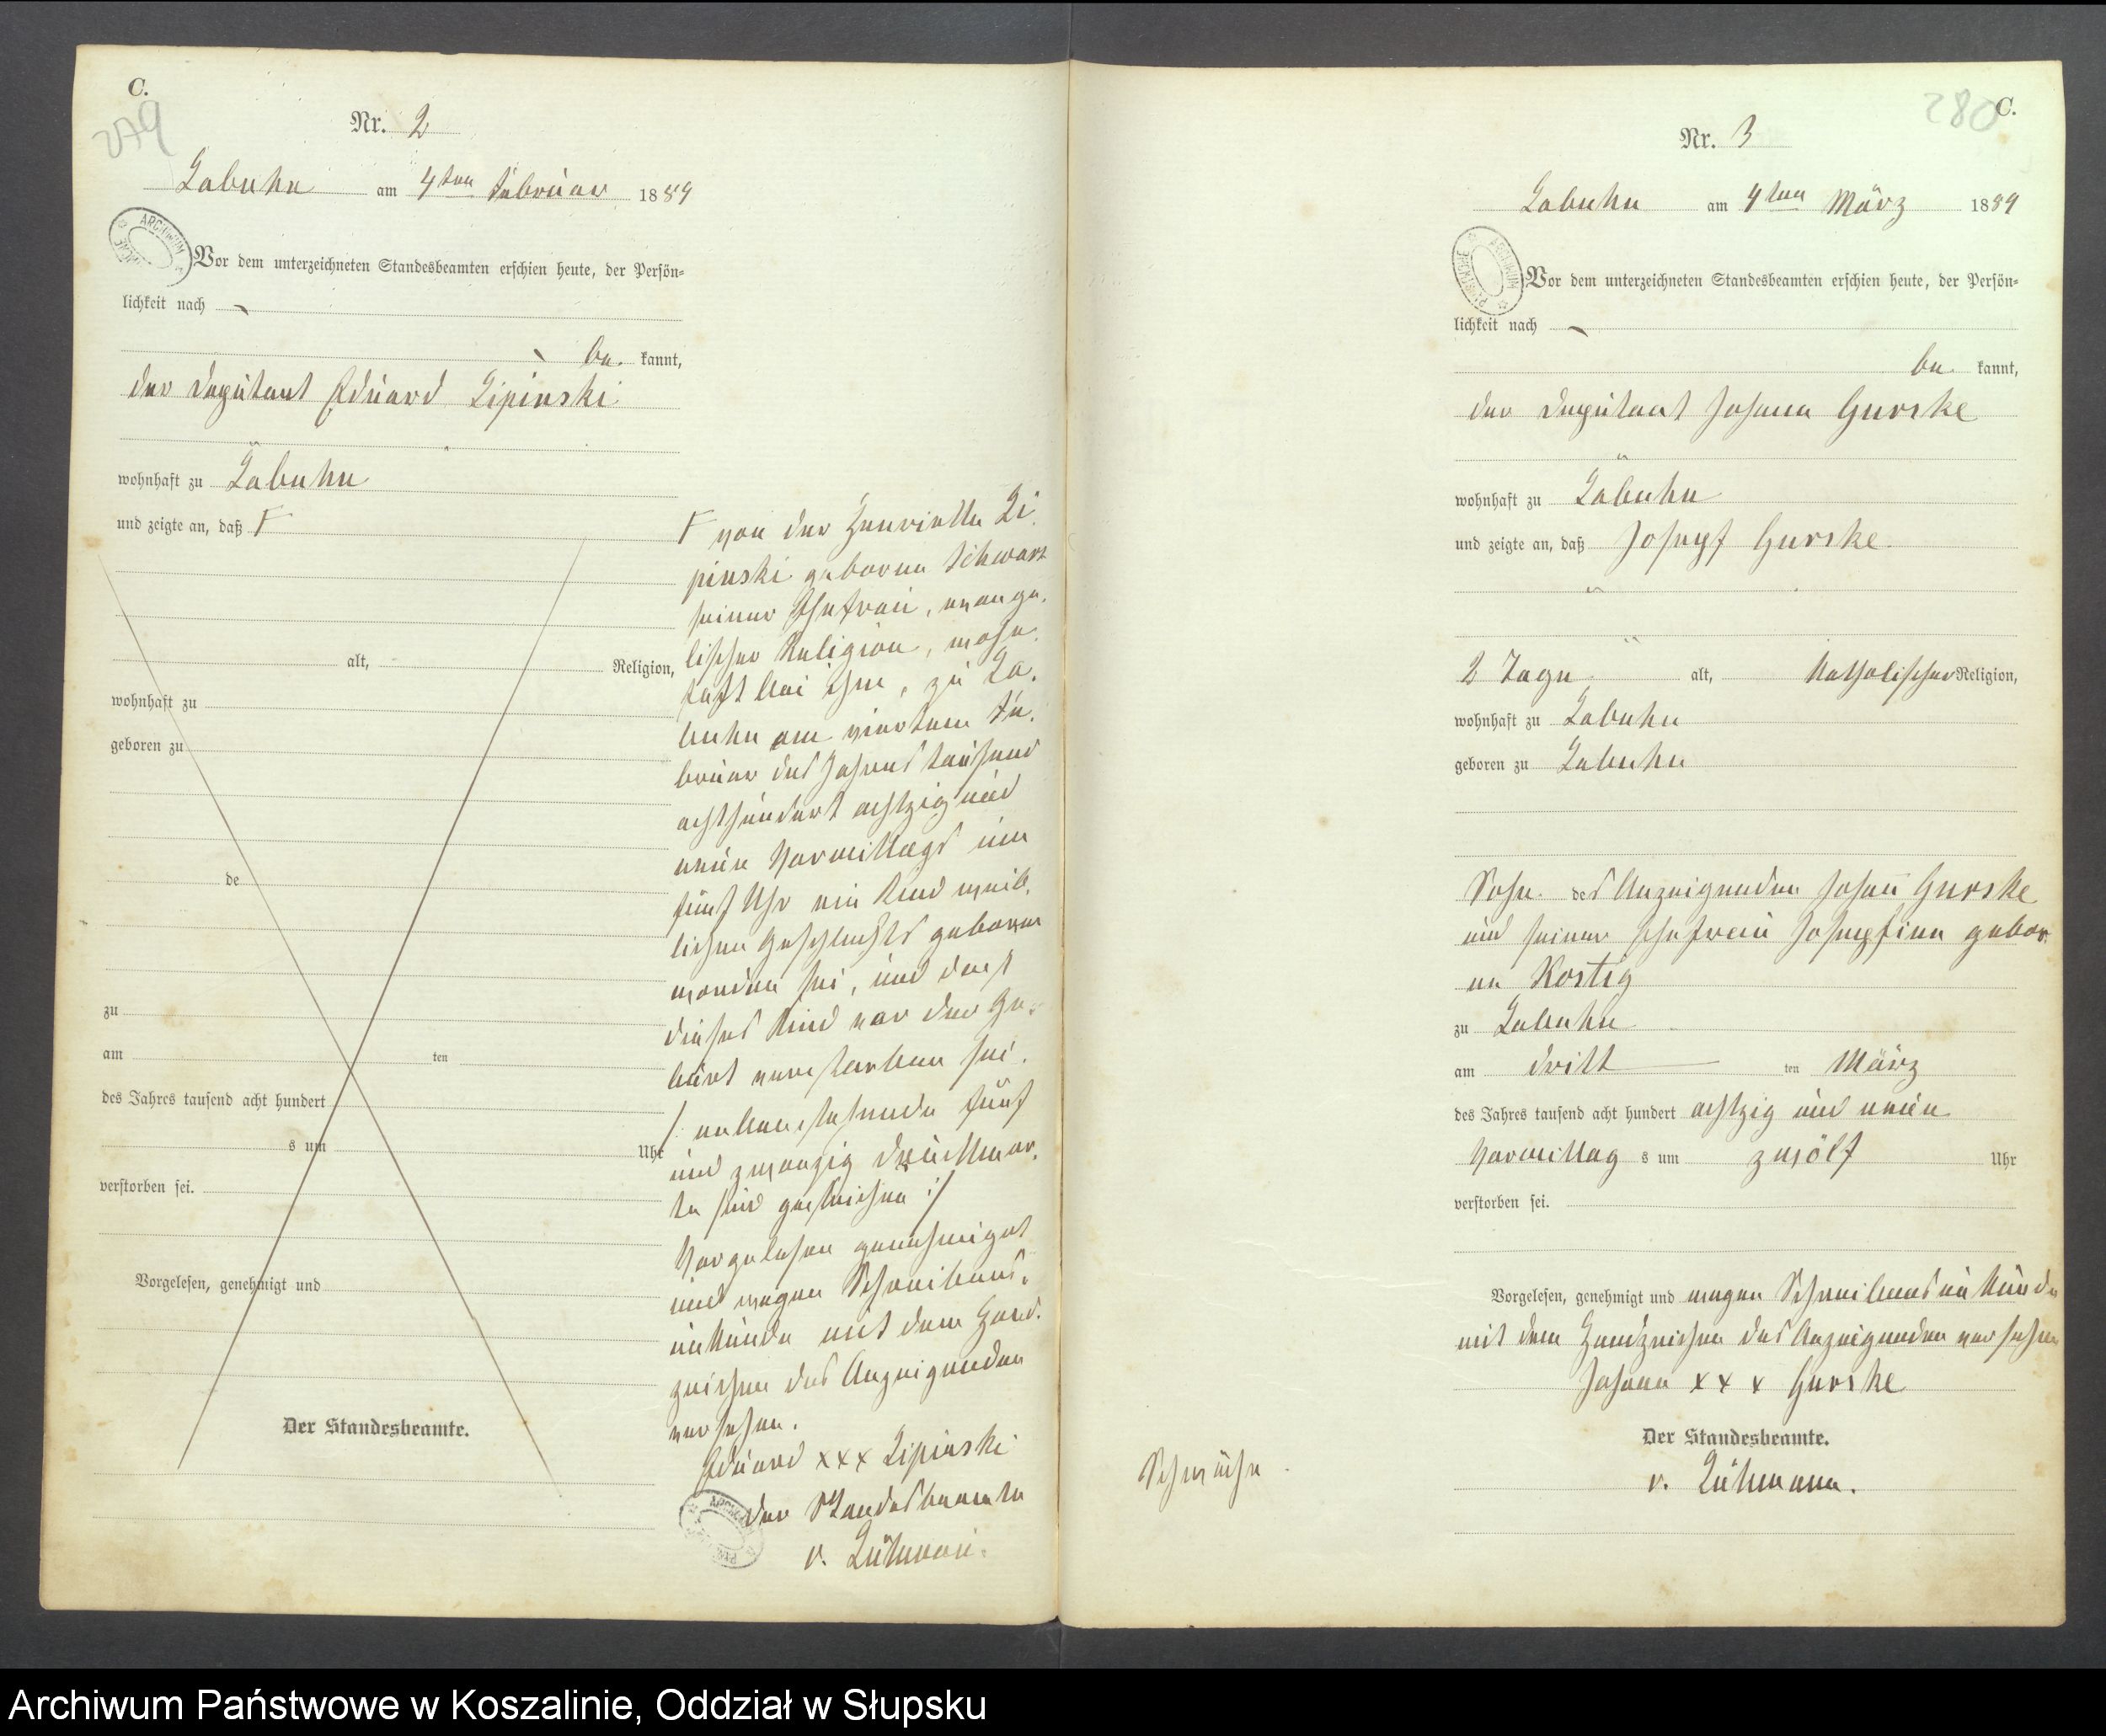 C.
279
Nr. 2
Labuhn am 4ten Februar 1889
Vor dem unterzeichneten Standesbeamten erschien heute, der Persön-
lichkeit nach
be kannt,
der Deputant Eduard Lipinski
wohnhaft zu Labuhn
und zeigte an, daß F
alt, Religion,
wohnhaft zu
geboren zu
de
zu
am ten
des Jahres tausend acht hundert
s um Uhr
verstorben sei.
Vorgelesen, genehmigt und
Der Standesbeamte.
F von der Henriette Li-
pinski geborene Schwarz
seiner Ehefrau, evange-
lischer Religion, wohn-
haft bei ihm, zu La-
buhn am vierten Fe-
bruar des Jahres tausend
achthundert achtzig und
neun Vormittags um
fünf Uhr ein Kind weib-
lichen Geschlechts geboren
worden sei, und daß
dieses Kind vor der Ge-
burt verstorben sei.
/: nebenstehende fünf
und zwanzig Druckwor-
te sind gestrichen :/
Vorgelesen genehmigt
und wegen Schreibens-
unkunde mit dem Hand-
zeichen des Anzeigenden
versehen.
Eduard xxx Lipinski
Der Standesbeamte
v. Lühmann.
280
C.
Nr. 3
Labuhn am 4ten März 1889
Vor dem unterzeichneten Standesbeamten erschien heute, der Persön-
lichkeit nach
be kannt,
der Deputant Johann Gurske
wohnhaft zu Labuhn
und zeigte an, daß Joseph Gurske
2 Tage alt, Katholischer Religion,
wohnhaft zu Labuhn
geboren zu Labuhn
Sohn des Anzeigenden Johann Gurske
und seiner Ehefrau Josephine gebor-
ne Kostig
zu Labuhn
am dritt ten März
des Jahres tausend acht hundert achtzig und neun
Vormittag s um zwölf Uhr
verstorben sei.
Vorgelesen, genehmigt und wegen Schreibensunkunde
mit dem Handzeichen des Anzeigenden versehen
Johann x x x Gurske
Der Standesbeamte.
v. Lühmann.
Schwäche
Archiwum Państwowe w Koszalinie, Oddział w Słupsku